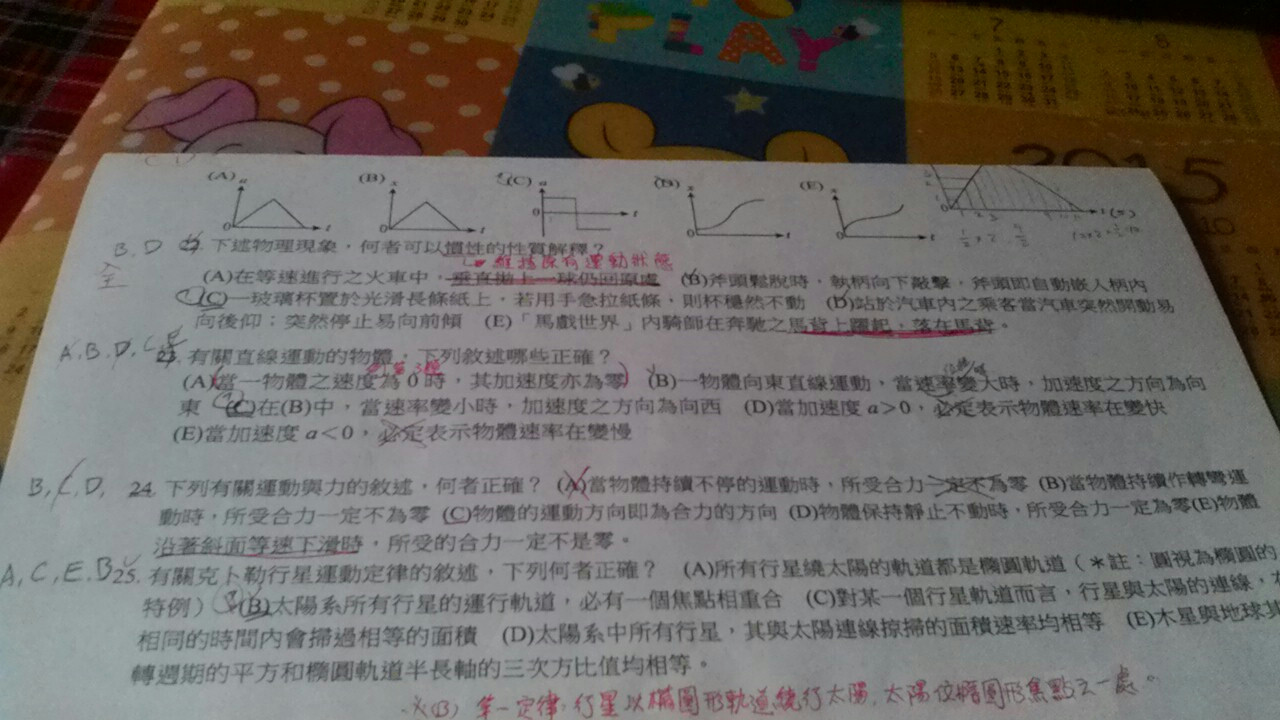 PLAY
7
8
2015
10
(A) (B) (C) (D) (E)
a x a x x
0 t 0 t 0 t 0 t 0 t
B. D 22. 下述物理現象，何者可以慣性的性質解釋？
維持原有運動狀態
(A)在等速進行之火車中，垂直拋上一球仍回原處 (B)斧頭鬆脫時，執柄向下敲擊，斧頭即自動嵌人柄內
(C)一玻璃杯置於光滑長條紙上，若用手急拉紙條，則杯穩然不動 (D)站於汽車內之乘客當汽車突然開動易
向後仰；突然停止易向前傾 (E)「馬戲世界」內騎師在奔馳之馬背上躍起，落在馬背。
A.B.D.C.E 23. 有關直線運動的物體，下列敘述哪些正確？
(A)當一物體之速度為 0 時，其加速度亦為零 (B)一物體向東直線運動，當速率變大時，加速度之方向為向
東 (C)在(B)中，當速率變小時，加速度之方向為向西 (D)當加速度 a＞0，必定表示物體速率在變快
(E)當加速度 a＜0，必定表示物體速率在變慢
B, C, D, 24. 下列有關運動與力的敘述，何者正確？ (A)當物體持續不停的運動時，所受合力一定不為零 (B)當物體持續作轉彎運
動時，所受合力一定不為零 (C)物體的運動方向即為合力的方向 (D)物體保持靜止不動時，所受合力一定為零(E)物體
沿著斜面等速下滑時，所受的合力一定不是零。
A, C, E, B 25. 有關克卜勒行星運動定律的敘述，下列何者正確？ (A)所有行星繞太陽的軌道都是橢圓軌道（＊註：圓視為橢圓的
特例） (B)太陽系所有行星的運行軌道，必有一個焦點相重合 (C)對某一個行星軌道而言，行星與太陽的連線，在
相同的時間內會掃過相等的面積 (D)太陽系中所有行星，其與太陽連線掠掃的面積速率均相等 (E)木星與地球
轉週期的平方和橢圓軌道半長軸的三次方比值均相等。
(B) 第一定律：行星以橢圓形軌道繞行太陽，太陽位橢圓形焦點之一處。